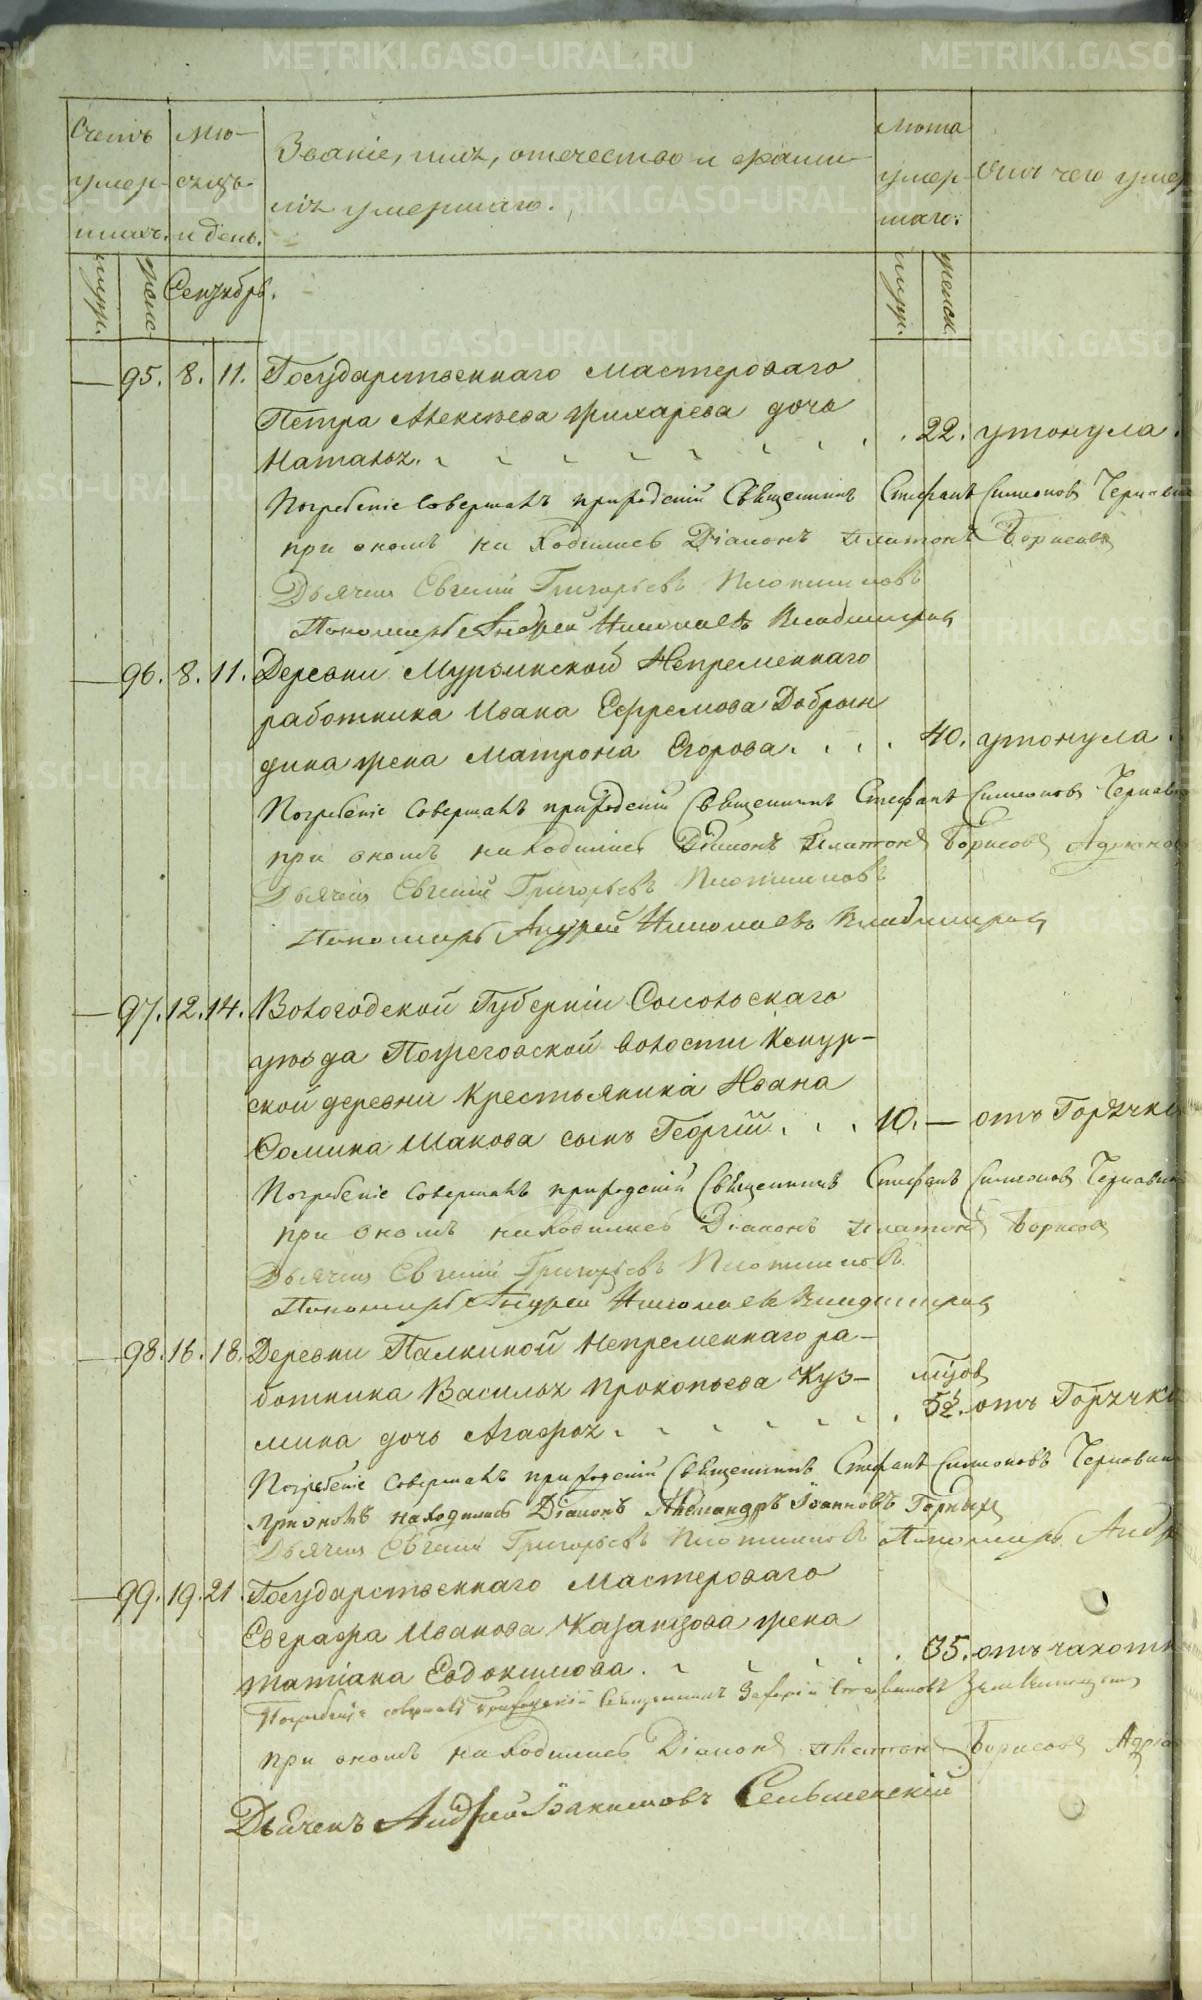 Счетъ умер- шихъ.
мѣ- сяцъ и день.
Званіе, имя, отечество и фами-
лія умершаго.
лѣта умер- шаго.
Отъ чего умер
муж. женс. Сентябрь. муж. женск.
— 95. 8. 11. Государственнаго мастероваго
Петра Алексѣева Жихарева дочь
Наталья. 22. утонула.
Погребеніе совершалъ приходскій Священникъ Стефанъ Симеоновъ Чернавин
при ономъ находились Діаконъ Платонъ Борисовъ
Дьячекъ Евгеній Григорьевъ Плотниковъ
Пономарь Андрей Николаевъ Владимировъ
— 96. 8. 11. Деревни Мурзинской Непременнаго
работника Ивана Ефремова Добрын
дина жена Матрона Егорова. 40. утонула.
Погребеніе совершалъ приходскій Священникъ Стефанъ Симеоновъ Чернавин
при ономъ находились Діаконъ Платонъ Борисовъ
Дьячекъ Евгеній Григорьевъ Плотниковъ
Пономарь Андрей Николаевъ Владимировъ
— 97. 12. 14. Вологодской Губерніи Сольвскаго
уѣзда волости
ской деревни Крестьянина Ивана
Ѳомина Шакова сынъ Георгій. 10. — отъ Горячки
Погребеніе совершалъ приходскій Священникъ Стефанъ Симеоновъ Чернавин
при ономъ находились Діаконъ Платонъ Борисовъ
Дьячекъ Евгеній Григорьевъ Плотниковъ
Пономарь Андрей Николаевъ Владимировъ
— 98. 16. 18. Деревни Палкиной Непременнаго ра-
ботника Василья Прокопьева Куз- 5½. отъ Горячки
мина дочь Агафья
Погребеніе совершалъ приходскій Священникъ Стефанъ Симеоновъ Чернавин
при ономъ находились Діаконъ Александръ Іоанновъ Горныхъ
Дьячекъ Евгеній Григорьевъ Плотниковъ Пономарь Андр
— 99. 19. 21. Государственнаго Мастероваго
Евграфа Иванова Казанцова жена
Татіана Евдокимова. 35. отъ чахотк
Погребеніе совершалъ Приходскій Священникъ Захарій
при ономъ находились Діаконъ Платонъ Борисовъ
Дьячекъ Андрей Іакимовъ Сельменскій
METRIKI.GASO-URAL.RU